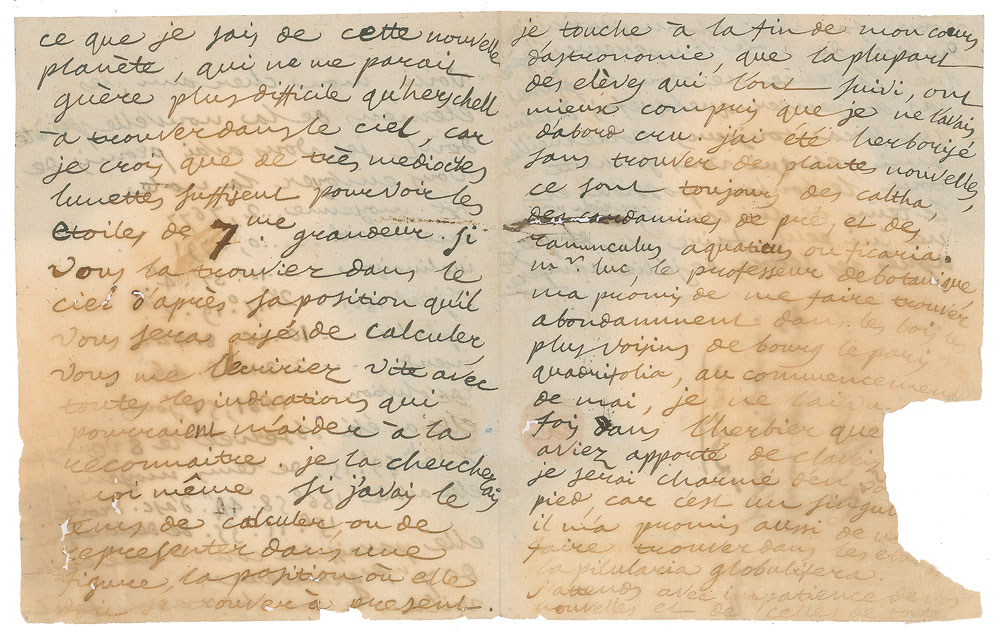 ce que je sais de cette nouvelle
planète, qui ne me parait
guère plus difficile qu'herschell
à trouver dans le ciel, car
je crois que de très médiocres
lunettes suffisent pour voir les
etoiles de 7me grandeur. si
vous la trouviez dans le
ciel d'après sa position qu'il
vous sera aisé de calculer,
vous me l'ecririez vite avec
toutes les indications qui
pourraient m'aider à la
reconnaitre je la chercherais
moi même si j'avais le
tems de calculer ou de
representer dans une
figure, la position où elle
doit se trouver à present.
je touche à la fin de mon cours
d'astronomie, que la plupart
des elèves qui l'ont suivi, ont
mieux compris que je ne l'avais
d'abord cru j'ai été herborisé
sans trouver de plantes nouvelles,
ce sont toujours des caltha,
des cardamine de pré, et des
ranunculus aquaticus ou ficaria.
mr. luc, le professeur de botanique
m'a promis de me faire trouver
abondamment dans les bois le
plus voisins de bourg le paris
quadrifolia, au commencement
de mai, je ne l'ai vu
fois dans l'herbier que
aviez apporté de
je serai charmé d'en
pied, car c'est un
il m'a promis aussi de
faire trouver dans les
la pilularia globulifera.
j'attends avec impatience de vos
nouvelles et de celles de